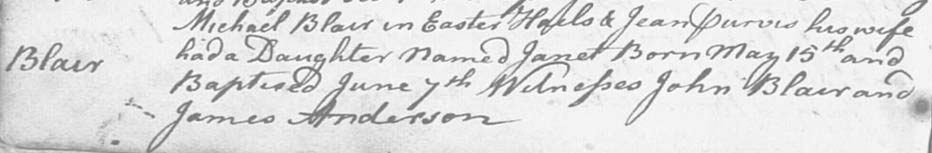 Michael Blair in Easter Hails & Jean Purvis his wife
Blair had a Daughter Named Janet Born May 15th and
Baptised June 7th Witnesses John Blair and
James Anderson